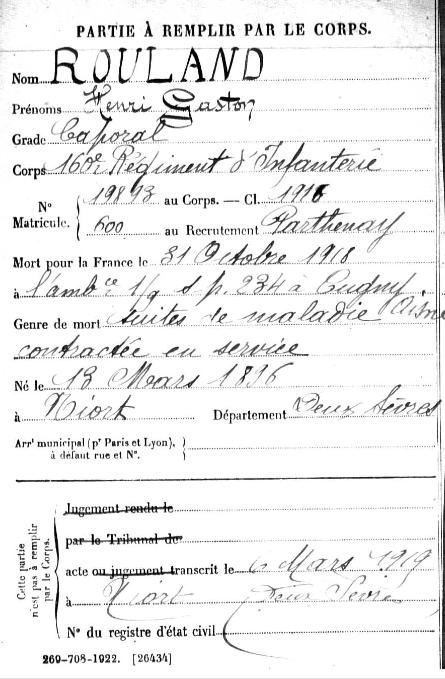 PARTIE À REMPLIR PAR LE CORPS.
Nom ROULAND
Prénoms Henri Gaston
Grade Caporal
Corps 160e Régiment d'Infanterie
N° Matricule. { 19893 au Corps. — Cl. 1916
600 au Recrutement Parthenay
Mort pour la France le 31 Octobre 1918
à l'ambce 1/9 s p. 234 à Cugny Aisne
Genre de mort suites de maladie
contractée en service
Né le 13 Mars 1896
à Niort Département Deux Sèvres
Arrt municipal (pr Paris et Lyon),
à défaut rue et N°.
Cette partie n'est pas à remplir par le Corps.
Jugement rendu le
par le Tribunal de
acte ou jugement transcrit le 6 Mars 1919
à Niort Deux Sèvres
N° du registre d'état civil
269-708-1922. [26434]